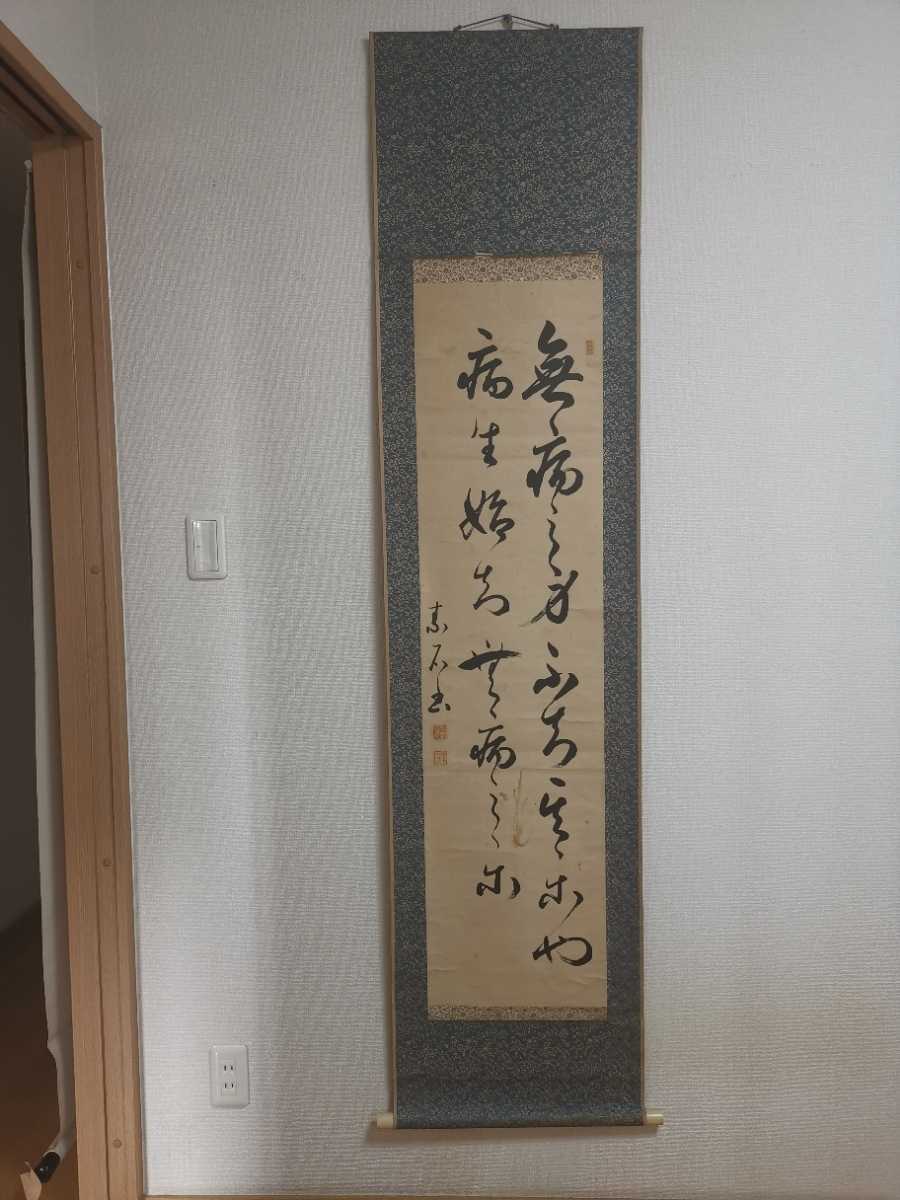 無病之身不知其樂也
病生始知無病之樂
素石書